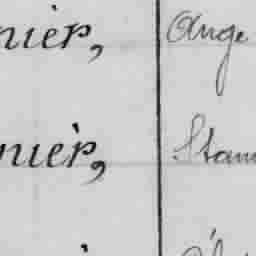 nier, Ange
nier, Stan